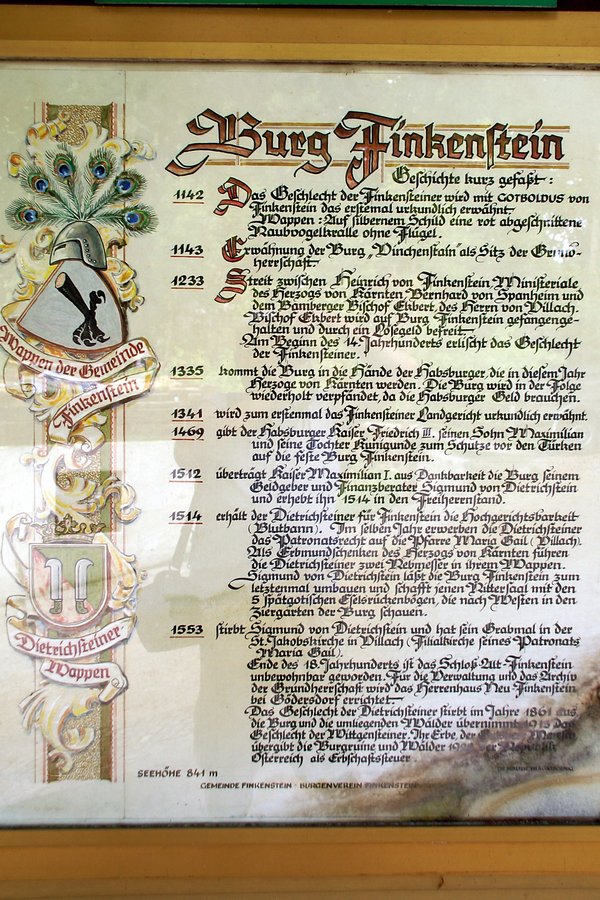 Burg Finkenstein
Geschichte kurz gefaßt:
1142 Das Geschlecht der Finkensteiner wird mit GOTBOLDUS von
Finkenstein das erstemal urkundlich erwähnt
Wappen: Auf silbernem Schild eine rot abgeschnittene
Raubvogelkralle ohne Flügel.
1143 Erwähnung der Burg „Vinchenstain" als Sitz der Grund-
herrschaft.
1233 Streit zwischen Heinrich von Finkenstein, Ministeriale
des Herzogs von Kärnten, Bernhard von Spanheim und
dem Bamberger Bischof Ekbert, des Herrn von Villach.
Bischof Ekbert wird auf Burg Finkenstein gefangenge-
halten und durch ein Lösegeld befreit.
Am Beginn des 14. Jahrhunderts erlischt das Geschlecht
der Finkensteiner.
1335 kommt die Burg in die Hände der Habsburger, die in diesem Jahr
Herzoge von Kärnten werden. Die Burg wird in der Folge
wiederholt verpfändet, da die Habsburger Geld brauchen.
1341 wird zum erstenmal das Finkensteiner Landgericht urkundlich erwähnt.
1469 gibt der Habsburger Kaiser Friedrich III. seinen Sohn Maximilian
und seine Tochter Kunigunde zum Schutze vor den Türken
auf die feste Burg Finkenstein.
1512 überträgt Kaiser Maximilian I. aus Dankbarkeit die Burg seinem
Geldgeber und Finanzberater Sigmund von Dietrichstein
und erhebt ihn 1514 in den Freiherrnstand.
1514 erhält der Dietrichsteiner für Finkenstein die Hochgerichtsbarkeit
(Blutbann). Im selben Jahr erwerben die Dietrichsteiner
das Patronatsrecht auf die Pfarre Maria Gail (Villach).
Als Erbmundschenken des Herzogs von Kärnten führen
die Dietrichsteiner zwei Rebmesser in ihrem Wappen.
Sigmund von Dietrichstein läßt die Burg Finkenstein zum
letztenmal umbauen und schafft jenen Rittersaal mit den
5 spätgotischen Eselsrückenbögen, die nach Westen in den
Ziergarten der Burg schauen.
1553 stirbt Sigmund von Dietrichstein und hat sein Grabmal in der
St. Jakobskirche in Villach (Filialkirche seines Patronats
Maria Gail).
Ende des 18. Jahrhunderts ist das Schloß Alt-Finkenstein
unbewohnbar geworden. Für die Verwaltung und das Archiv
der Grundherrschaft wird das Herrenhaus Neu-Finkenstein
bei Gödersdorf errichtet.
Das Geschlecht der Dietrichsteiner stirbt im Jahre 1861 aus,
die Burg und die umliegenden Wälder übernimmt 1913 das
Geschlecht der Wittgensteiner. Ihr Erbe, der
übergibt die Burgruine und Wälder der Republik
Österreich als Erbschaftssteuer.
Wappen der Gemeinde
Finkenstein
Dietrichsteiner
Wappen
SEEHÖHE 841 m
GEMEINDE FINKENSTEIN - BURGENVEREIN FINKENSTEIN